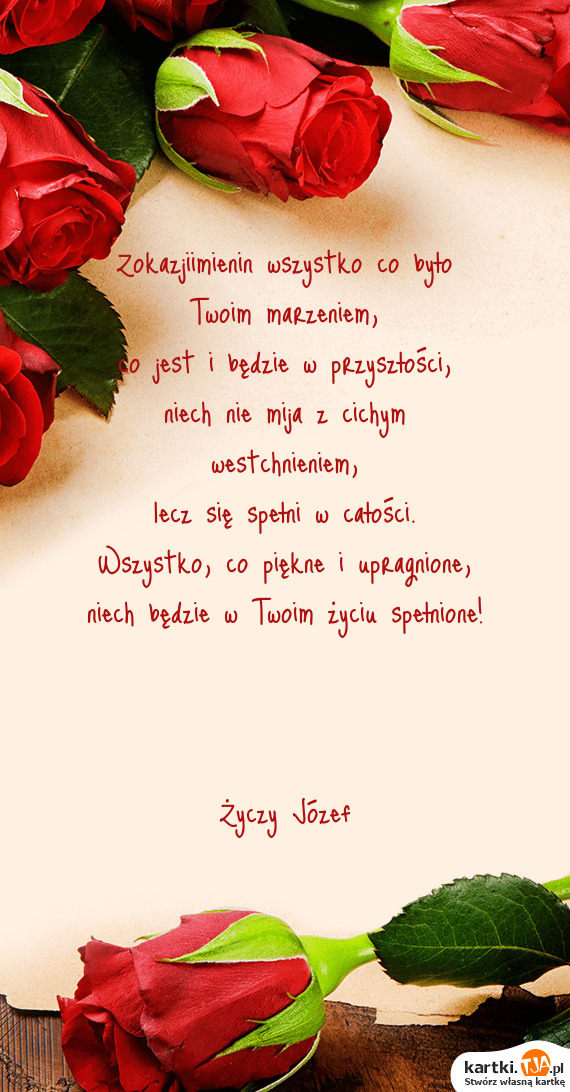 Zokazjiimienin wszystko co było
Twoim marzeniem,
co jest i będzie w przyszłości,
niech nie mija z cichym
westchnieniem,
lecz się spełni w całości.
Wszystko, co piękne i upragnione,
niech będzie w Twoim życiu spełnione!
Życzy Józef
kartki.TJA.pl
Stwórz własną kartkę